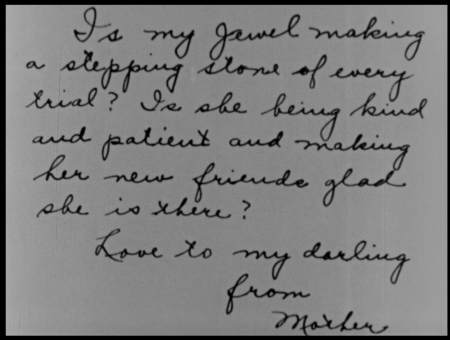 Is my Jewel making
a stepping stone of every
trial? Is she being kind
and patient and making
her new friends glad
she is there?
Love to my darling
from
Mother